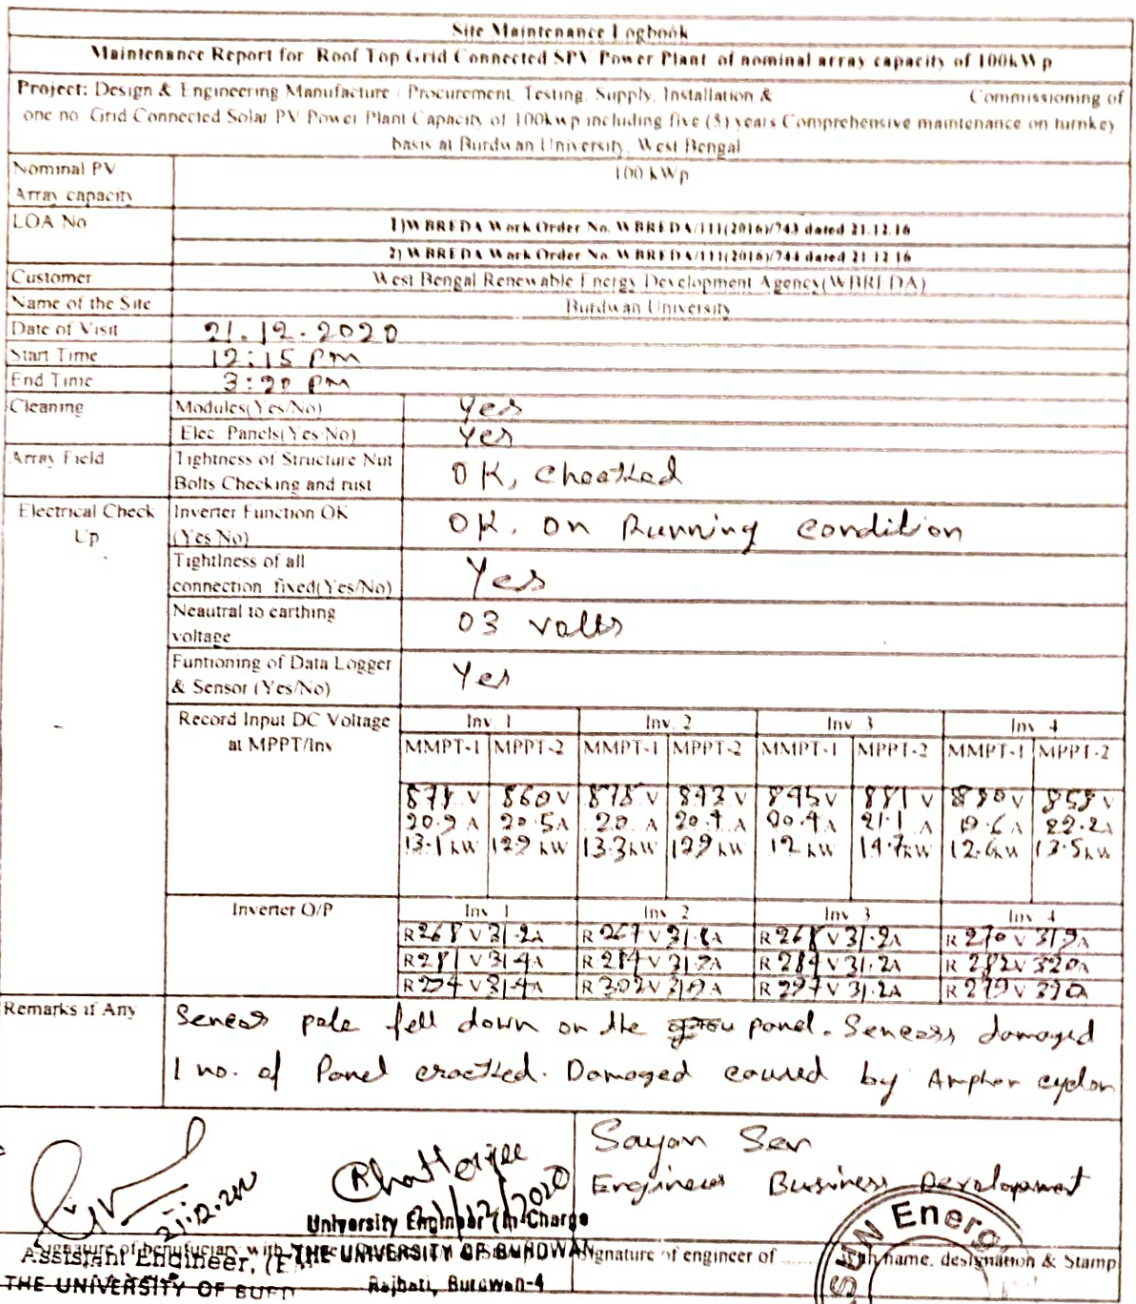 Site Maintenance Logbook
Maintenance Report for Roof Top Grid Connected SPV Power Plant of nominal array capacity of 100kWp
Project: Design & Engineering Manufacture / Procurement, Testing, Supply, Installation & Commissioning of
one no. Grid Connected Solar PV Power Plant Capacity of 100kwp including five (5) years Comprehensive maintenance on turnkey
basis at Burdwan University, West Bengal
Nominal PV Array capacity 100 kWp
LOA No 1)WBREDA Work Order No. WBREDA/111(2016)/743 dated 21.12.16
2) WBREDA Work Order No. WBREDA/111(2016)/744 dated 21.12.16
Customer West Bengal Renewable Energy Development Agency(WBREDA)
Name of the Site Burdwan University
Date of Visit 21.12.2020
Start Time 12:15 PM
End Time 3:20 PM
Cleaning Modules(Yes/No) Yes
Elec. Panels(Yes/No) Yes
Array Field Tightness of Structure Nut
Bolts Checking and rust OK, Cheatked
Electrical Check Up Inverter Function OK
(Yes/No) OK. on Running condition
Tightlness of all
connection fixed(Yes/No) Yes
Neautral to earthing
voltage 03 volts
Funtioning of Data Logger
& Sensor (Yes/No) Yes
Record Input DC Voltage
at MPPT/Inv
Inv. 1 Inv. 2 Inv. 3 Inv. 4
MMPT-1 MPPT-2 MMPT-1 MPPT-2 MMPT-1 MPPT-2 MMPT-1 MPPT-2
860 V 881 V
20.5 A 20 A 21.1 A 22.2 A
13.1 kW 13.3 kW 12 kW 14.7 kW 12.6 kW 13.5 kW
Inverter O/P Inv. 1 Inv. 2 Inv. 3 Inv. 4
R 268 V 31.2 A R 267 V R 268 V 31.2 A R 270 V
R 281 V 31.4 A R 284 V R 284 V 31.2 A R 282 V
R 294 V 31.4 A R 302 V R 297 V 31.2 A R 279 V
Remarks if Any
Seneor pole fell down on the panel. Senears damaged
1 no. of Panel cracked. Damaged caused by Amphan cyclon
Sayan Sen
Engineer Business Development
21.12.2020
RChatterjee
21/12/2020
University Engineer (In-Charge
THE UNIVERSITY OF BURDWAN
Rajbati, Burdwan-4
Signature of benificiary with
Assistant Engineer, (E
THE UNIVERSITY OF BURD
Signature of engineer of ...... name, designation & Stamp
SUN Energy